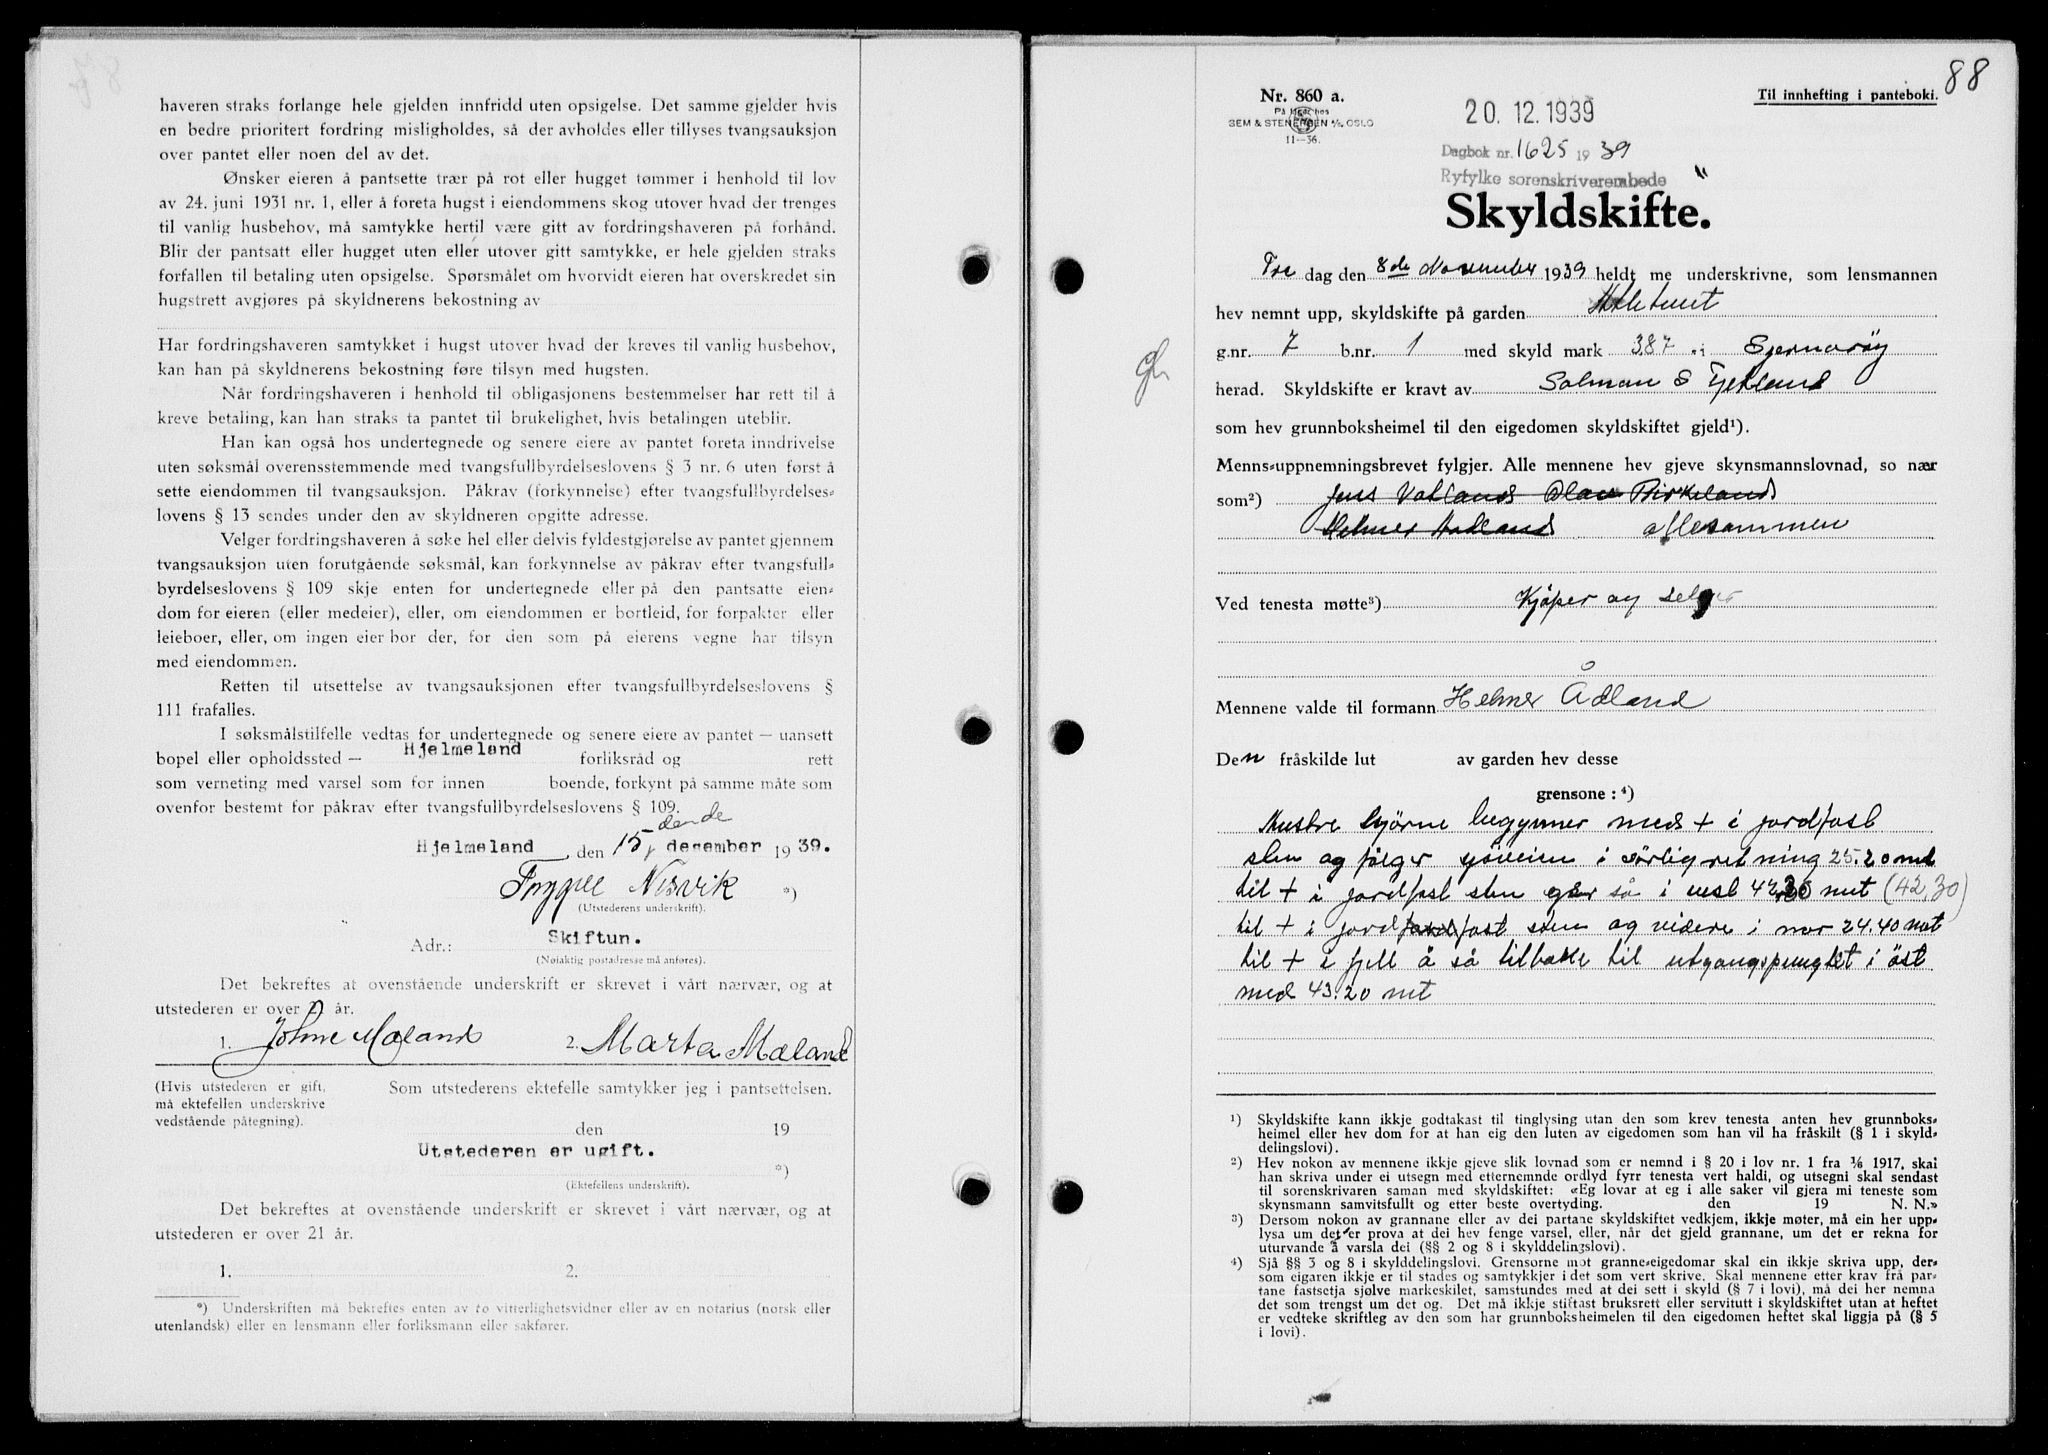 haveren straks forlange hele gjelden innfridd uten opsigelse. Det samme gjelder hvis
en bedre prioritert fordring misligholdes, så der avholdes eller tillyses tvangsauksjon
over pantet eller noen del av det.
Ønsker eieren å pantsette trær på rot eller hugget tømmer i henhold til lov
av 24. juni 1931 nr. 1, eller å foreta hugst i eiendommens skog utover hvad der trenges
til vanlig husbehov, må samtykke hertil være gitt av fordringshaveren på forhånd.
Blir der pantsatt eller hugget uten eller utover gitt samtykke, er hele gjelden straks
forfallen til betaling uten opsigelse. Spørsmålet om hvorvidt eieren har overskredet sin
hugstrett avgjøres på skyldnerens bekostning av
Har fordringshaveren samtykket i hugst utover hvad der kreves til vanlig husbehov,
kan han på skyldnerens bekostning føre tilsyn med hugsten.
Når fordringshaveren i henhold til obligasjonens bestemmelser har rett til å
kreve betaling, kan han straks ta pantet til brukelighet, hvis betalingen uteblir.
Han kan også hos undertegnede og senere eiere av pantet foreta inndrivelse
uten søksmål overensstemmende med tvangsfullbyrdelseslovens § 3 nr. 6 uten først å
sette eiendommen til tvangsauksjon. Påkrav (forkynnelse) efter tvangsfullbyrdelses-
lovens § 13 sendes under den av skyldneren opgitte adresse.
Velger fordringshaveren å søke hel eller delvis fyldestgjørelse av pantet gjennem
tvangsauksjon uten forutgående søksmål, kan forkynnelse av påkrav efter tvangsfull-
byrdelseslovens § 109 skje enten for undertegnede eller på den pantsatte eien-
dom for eieren (eller medeier), eller, om eiendommen er bortleid, for forpakter eller
leieboer, eller, om ingen eier bor der, for den som på eierens vegne har tilsyn
med eiendommen.
Retten til utsettelse av tvangsauksjonen efter tvangsfullbyrdelseslovens §
111 frafalles.
I søksmålstilfelle vedtas for undertegnede og senere eiere av pantet — uansett
bopel eller opholdssted — Hjelmeland forliksråd og rett
som verneting med varsel som for innen boende, forkynt på samme måte som
ovenfor bestemt for påkrav efter tvangsfullbyrdelseslovens § 109.
Hjelmeland, den 15 dende desember 1939.
Trygve Nesvik *)
(Utstederens underskrift).
Adr.: Skiftun.
(Nøiaktig postadresse må anføres).
Det bekreftes at ovenstående underskrift er skrevet i vårt nærvær, og at
utstederen er over 21 år.
1. Johne Mæland 2. Marta Mæland
(Hvis utstederen er gift,
må ektefellen underskrive
vedstående påtegning).
Som utstederens ektefelle samtykker jeg i pantsettelsen.
den 19
Utstederen er ugift.
*)
(Ektefellens underskrift).
Det bekreftes at ovenstående underskrift er skrevet i vårt nærvær, og at
utstederen er over 21 år.
1. 2.
*) Underskriften må bekreftes enten av to vitterlighetsvidner eller av en notarius (norsk eller
utenlandsk) eller en lensmann eller forliksmann eller sakfører.
88
Nr. 860 a.
På lager hos
SEM & STENERSEN A/S OSLO
11—36.
Til innhefting i panteboki.
20. 12. 1939
Dagbok nr. 1625 1939
Ryfylke sorenskriverembede
Skyldskifte.
dag den 8de November 1939 heldt me underskrivne, som lensmannen
hev nemnt upp, skyldskifte på garden
g.nr. 7 b.nr. 1 med skyld mark 3.87 i Sjernarøy
herad. Skyldskifte er kravt av Salman S
som hev grunnboksheimel til den eigedomen skyldskiftet gjeld¹).
Menns-uppnemningsbrevet fylgjer. Alle mennene hev gjeve skynsmannslovnad, so nær
som²) Jens Vatland Olav Birkeland
Helmer Aadland allesammen
Ved tenesta møtte³) Kjøper og selger
Mennene valde til formann Helmer Ådland
Den fråskilde lut av garden hev desse
grensone: ⁴)
Austre Hjørne begynner med + i jordfast
sten og følger i sørlig retning 25.20 met
til + i jordfast sten går så i vest 42.30 met (42,30)
til + i jordfast sten og videre i nor 24.40 met
til + i fjell å så tilbake til utgangspungtet i öst
med 43.20 met
¹) Skyldskifte kann ikkje godtakast til tinglysing utan den som krev tenesta anten hev grunnboks-
heimel eller hev dom for at han eig den luten av eigedomen som han vil ha fråskilt (§ 1 i skyld-
delingslovi).
²) Hev nokon av mennene ikkje gjeve slik lovnad som er nemnd i § 20 i lov nr. 1 fra ¹/₆ 1917, skal
han skriva under ei utsegn med etternemnde ordlyd fyrr tenesta vert haldi, og utsegni skal sendast
til sorenskrivaren saman med skyldskiftet: «Eg lovar at eg i alle saker vil gjera mi teneste som
skynsmann samvitsfullt og etter beste overtyding. den 19 N. N.»
³) Dersom nokon av grannane eller av dei partane skyldskiftet vedkjem, ikkje møter, må ein her upp-
lysa um det er prova at dei hev fenge varsel, eller, når det gjeld grannane, um det er rekna for
uturvande å varsla dei (§§ 2 og 8 i skylddelingslovi).
⁴) Sjå §§ 3 og 8 i skylddelingslovi. Grensorne mot granne-eigedomar skal ein ikkje skriva upp, der-
som eigaren ikkje er til stades og samtykkjer i det som vert skrive. Skal mennene etter krav frå par-
tane fastsetja sjølve markeskilet, samstundes med at dei sett i skyld (§ 7 i lovi), må dei her nemna
det som trengst um det og. Det må ikkje stiftast bruksrett eller servitutt i skyldskiftet utan at heftet
er vedteke skriftleg av den som har grunnboksheimelen til den eigedomen heftet skal liggja på (§ 5
i lovi).